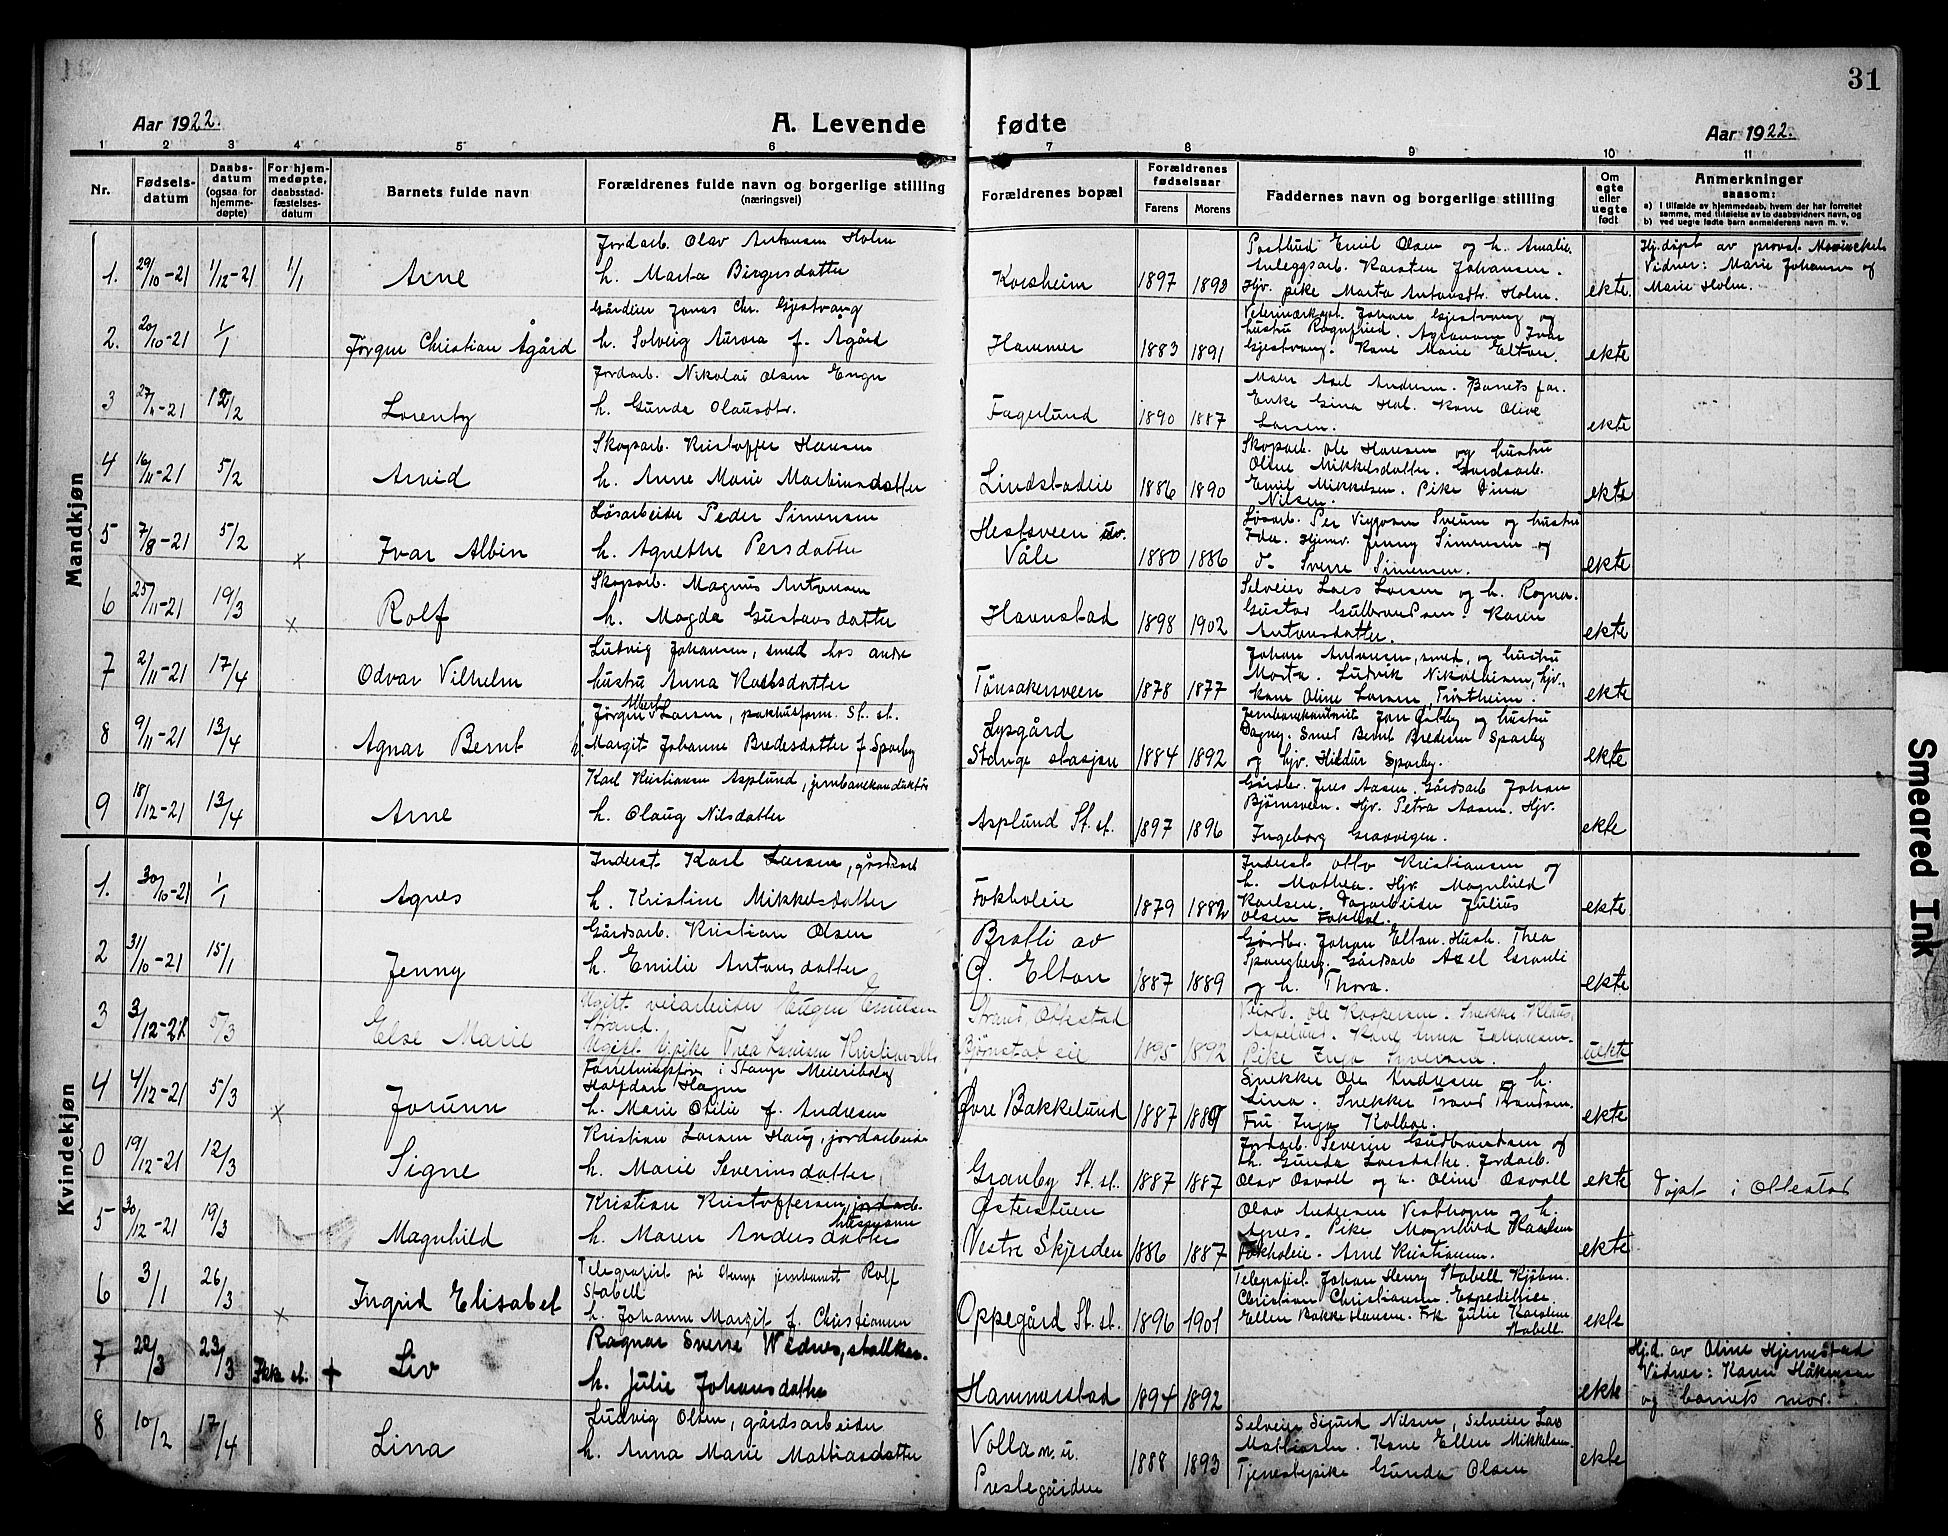 31
Aar 1922.
A. Levende fødte
Aar 1922.
1 2 3 4 5 6 7 8 9 10 11
Nr.
Fødsels-
datum
Daabs-
datum
(ogsaa for
hjemme-
døpte)
For hjem-
medøpte,
daabsstad-
fæstelses-
datum
Barnets fulde navn
Forældrenes fulde navn og borgerlige stilling
(næringsvei)
Forældrenes bopæl
Forældrenes
fødselsaar
Farens Morens
Faddernes navn og borgerlige stilling
Om
egte
eller
uegte
født
Anmerkninger
saasom:
a) i tilfælde av hjemmedaab, hvem der har forrettet
samme, med tilføielse av to daabsvidners navn, og
b) ved uegte fødte barn anmelderens navn m. v.
Mandkjøn
1. 29/10-21 1/12-21 1/1 Arne
Jordarb. Olav Antonsen Holm
h. Marta Birgersdatter
Korsheim 1897 1893
Postbud Emil Olsen og h. Amalie.
Anleggsarb. Karsten Johansen.
Hjv. pike Marta Antonsdtr. Holm.
ekte.
Hj.døpt av provst
Vidner: Marie Johansen og
Marie Holm.
2. 20/10-21 1/1 Jørgen Christian Ågård
Gårdeier Jonas Chr. Gjestvang
h. Solveig Aurora f. Ågård
Hammer 1883 1891
Veterinærkapt. Johan Gjestvang og
hustru Ragnfried. Agronom Ivar
Gjestvang. Kone Marie Elton.
ekte
3 27/11-21 12/2 Lorenty
Jordarb. Nikolai Olsen Engen
h. Gunda Olausdtr.
Fagerlund 1890 1887
Maler Axel Andersen. Barnets far.
Enke Gina Hol. Kone Olive
Larsen.
ekte
4 16/11-21 5/2 Arvid
Skogsarb. Kristoffer Hansen
h. Anne Marie Martinusdatter
Lindstadeie 1886 1890
Skogsarb. Ole Hansen og hustru
Oline Mikkelsdatter. Gårdsarb.
Emil Mikkelsen. Pike Dina
Nilsen.
ekte
5 7/8-21 5/2 x Ivar Albin
Løsarbeider Peder Simensen
h. Agnethe Persdatter
Hestsveen
Våle 1880 1886
Løsarb. Per Viggosen Sveum og hustru
Ida. Hjemv. Jenny Simensen og
Sverre Simensen.
ekte
6 25/11-21 19/3 x Rolf
Skogsarb. Magnus Antonsen
h. Magda Gustavsdatter
Havnstad 1898 1902
Selveier Lars Larsen og h. Ragna.
Gustav Gulbrandsen. Karen
Antonsdatter.
ekte
7 2/11-21 17/4 Odvar Vilhelm
Ludvig Johansen, smed hos andre
hustru Anna Karlsdatter
Tønsakersveen 1878 1877
Johan Antonsen, smed, og hustru
Marta. Ludvik Nikolaisen, hjv.,
kone Oline Larsen, Trøstheim.
ekte
8 9/11-21 13/4 Agnar Bernt
Jørgen Albert Larsen, pakhusform. St. st.
h. Margit Johanne Bredesdatter f. Sparby
Lysgård
Stange stasjon 1884 1892
Jernbanekontorist Jon Østby og hustru
Dagny. Smed Bernt Bredesen Sparby
og hjv. Hildur Sparby.
ekte
9 18/12-21 13/4 Arne
Karl Kristiansen Asplund, jernbanekonduktør
h. Olaug Nilsdatter
Asplund St. st. 1897 1896
Gårdbr. Jens Aasen. Gårdsarb Johan
Bjørnsveen. Hjv. Petra Aasen. Hjv.
Ingeborg Gravvigen.
ekte
Kvindekjøn
1. 30/10-21 1/1 Agnes
Inderst. Karl Larsen, gårdsarb
h. Kristine Mikkelsdatter
Fokholeie 1879 1882
Inderst. Otto Kristiansen og
h. Mathea. Hjv. Magnhild
Karlsen. Dagarbeider Julius
Olsen Fokhol.
ekte
2 31/10-21 15/1 Jenny
Gårdsarb. Kristian Olsen
h. Emilie Antonsdatter
Bratli av
Ø. Elton 1887 1889
Gårdbr. Johan Elton. Hush. Thea
Spangberg. Gårdsarb Axel Granli
og h. Thora.
ekte
3 3/12-21 5/3 Else Marie
Ugift veiarbeider Eugen Emilsen
Strand.
Ugift pike Thea Lovisen
Strand, Ottestad
Bjørnstad eie 1895 1892
Veiarb. Ole Snekker
Kone Anna Johansen.
Pike Inga
uekte
4 4/12-21 5/3 x Jorunn
i Stange Meieribolag
Halfdan Hagen
h. Marie Otilie f. Andresen
Øvre Bakkelund 1887 1889
Snekker Ole Andresen og h.
Lina. Snekker Trond Trondsen.
Fru Inga Kolboe.
ekte
0 19/12-21 12/3 Signe
Kristian Larsen Haug, jordarbeider
h. Marie Severinsdatter
Granby St. st. 1887 1887
Jordarb. Severin Gudbrandsen og
h. Gunda Larsdatter. Jordarb.
Olav Osvoll og h. Oline Osvoll
ekte
Døpt i Ottestad
5 30/12-21 19/3 Magnhild
Kristian Kristoffersen, jordarb.
husmann
h. Maren Andersdatter
Østerstuen
Vestre Skjerden 1886 1887
Olav Andersen Vesthagen og h.
Agnes. Pike Magnhild Karlsen
Fokholeie. Arne Kristiansen.
ekte
6 3/1 26/3 x Ingrid Elisabet
Telegrafist på Stange jernbanest Rolf
Stabell
h. Johanne Margit f. Christiansen
Oppegård St. st. 1896 1901
Telegrafist. Johan Henry Stabell. Kjøbm.
Christian Christiansen. Expeditrice
Ellen Bakke Hansen. Frk Julie Karoline
Stabell.
ekte
7 22/3 23/3 Ikke st. † Liv
Ragnar Sverre Widnes, stallkar.
h. Julie Johansdatter
Hammerstad 1894 1892
ekte
Hj.d. av Oline Hjemstad
Vidner: Karen Håkensen
og barnets mor.
8 10/2 17/4 Lina
Ludvig Olsen, gårdsarbeider
h. Anna Marie Mathiasdatter
Volla m. u.
Prestegården 1888 1893
Selveier Sigurd Nilsen, selveier Lars
Mathiasen. Kone Ellen Mikkelsen.
Tjenestepike Gunda Olsen
ekte
Smeared Ink